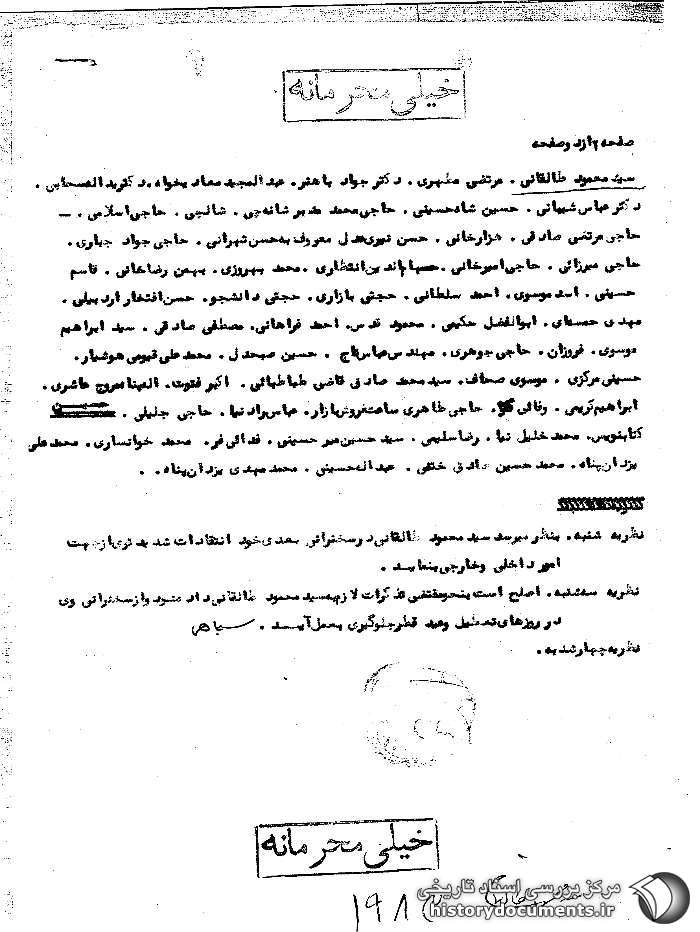 خیلی محرمانه
صفحه یازده صفحه
سید محمود طالقانی. مرتضی مطهری. دکتر جواد باهنر. عبدالمجید معادیخواه. دکتر یداله سحابی.
دکتر عباس شیبانی. حسین شاه حسینی. حاجی محمد مدیر شانه چی. شانچی. حاجی اسلامی. —
حاجی مرتضی صادقی. هزارخانی. حسن تهرانی معروف به حسن شهرانی. حاجی جواد جباری.
حاجی میرزائی. حاجی امیرخانی. حسام الدین انتظاری. محمد بهروزی. بهمن رضاخانی. قاسم
حسینی. اسد موسوی. احمد سلطانی. حجتی بازاری. حجتی دانشجو. حسن افتخار اردبیلی.
مهدی حمسه‌ای. ابوالفضل حکیمی. محمود قدس. احمد فراهانی. مصطفی صادقی. سید ابراهیم
موسوی. فروزان. حاجی جوهری. مهندس عباس تاج. حسین صبحدل. محمدعلی قیومی هوشیار.
حسینی مرکزی. موسوی صحاف. سید محمد صادق قاضی طباطبائی. اکبر فتوت. عاشری.
ابراهیم کریمی. وفائی. حاجی طاهری ساعت فروش بازار. عباس رادنیا. حاجی جلیلی. حسین
کتابنویس. محمد خلیل نیا. رضا سلیمی. سید حسین میرحسینی. فدائی فر. محمد خوانساری. محمدعلی
یزدان پناه. محمد حسین صادق خنفی. عبداله حسینی. محمد مهدی یزدان پناه.
نظریه شنبه. بنظر میرسد سید محمود طالقانی در سخنرانی بعدی خود انتقادات شدیدتری از جهت
امور داخلی و خارجی بنماید.
نظریه سه شنبه. اصلح است بنحو مقتضی تذکرات لازم به سید محمود طالقانی داده شود و از سخنرانی وی
در روزهای تعطیل و عید فطر جلوگیری بعمل آید.
نظریه چهارشنبه.
خیلی محرمانه
۱۹۸
مرکز بررسی اسناد تاریخی
historydocuments.ir